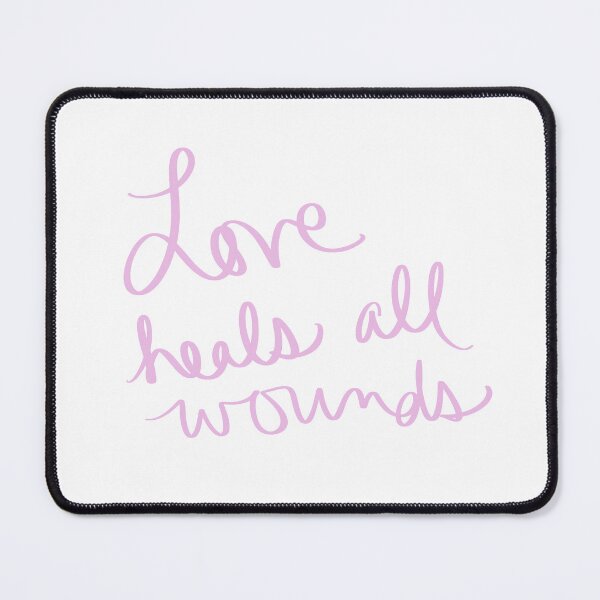 Love
heals all
wounds